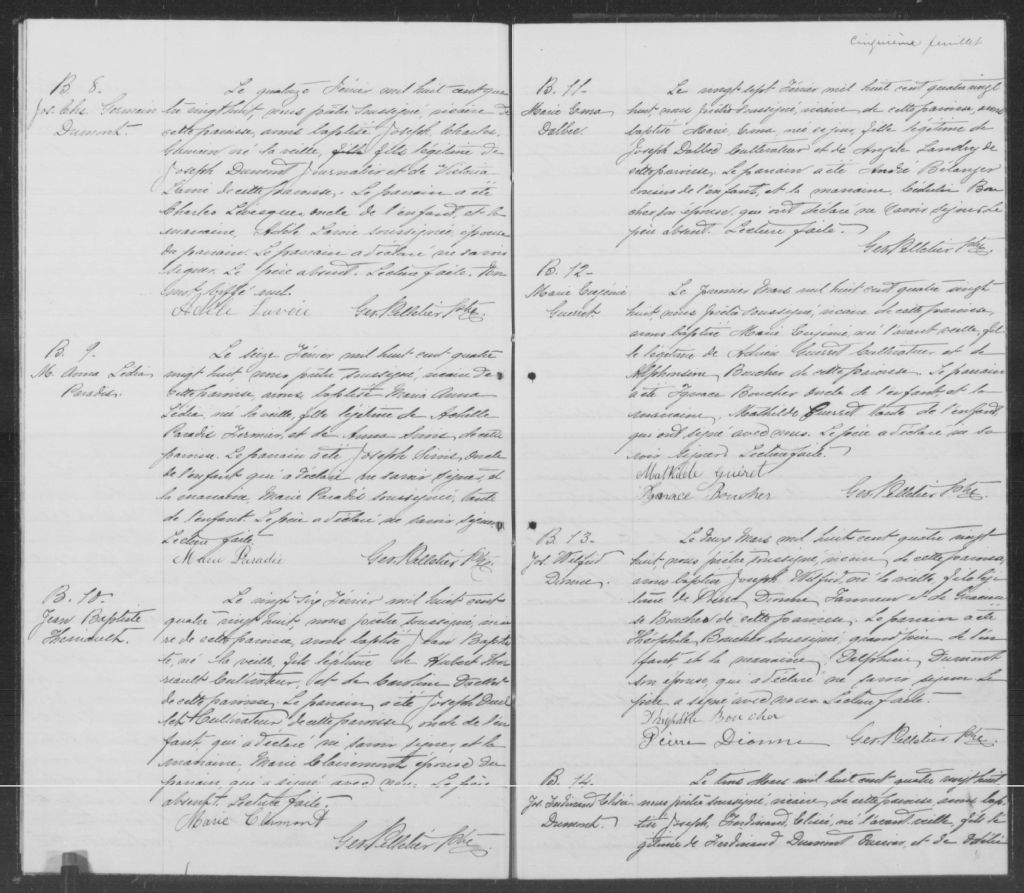 B. 8.
Jos. Chs. Germain
Dumont.
Le quatorze Février mil huit cent qua
tre vingt huit, nous prêtre soussigné, vicaire de
cette paroisse, avons baptisé Joseph, Charles,
Germain né la veille, fille fils légitime de
Joseph Dumont Journalier et de Victoria
de cette paroisse. Le parrain a été
Charles Lévesque oncle de l'enfant, et la
marraine, Adèle Lavoie soussignée, épouse
du parrain. Le parrain a déclaré ne savoir
signer. Le père absent. Lecture faite. Un
mot biffé nul.
Adèle Lavoie Geo. Pelletier Ptre.
B. 9.
M. Anna Lédia
Paradis.
Le seize Février mil huit cent quatre
vingt huit, nous prêtre soussigné, vicaire de
cette paroisse, avons baptisé Maria Anna
Lédia, née la veille, fille légitime de Achille
Paradis Fermier, et de Anna Sirois, de cette
paroisse. Le parrain a été Joseph Sirois, oncle
de l'enfant qui a déclaré ne savoir signer, et
la marraine, Marie Paradis soussignée, tante
de l'enfant. Le père a déclaré ne savoir signer.
Lecture faite.
Marie Paradis Geo. Pelletier Ptre.
B. 10.
Jean Baptiste
Theriault.
Le vingt six Février mil huit cent
quatre vingt huit nous prêtre soussigné, vicai
re de cette paroisse avons baptisé Jean Baptis
te, né la veille, fils légitime de Hubert The
riault Cultivateur, et de Caroline
de cette paroisse. Le parrain a été Joseph
Cultivateur de cette paroisse, oncle de l'en
fant, qui a déclaré ne savoir signer, et la
marraine, Marie Clairemont épouse du
parrain, qui a signé avec nous. Le père
absent. Lecture faite.
Marie Clermont
Geo. Pelletier Ptre.
Cinquième feuillet
B. 11-
Marie Ema
Dalbec.
Le vingt sept Février mil huit cent quatre vingt
huit, nous prêtre soussigné, vicaire de cette paroisse, avons
baptisé Marie, Ema, née ce jour, fille légitime de
Joseph Dalbec Cultivateur et de Angèle Landry de
cette paroisse. Le parrain a été André Bélanger
cousin de l'enfant, et la marraine, Bou
cher son épouse, qui ont déclaré ne savoir signer. Le
père absent. Lecture faite.
Geo. Pelletier Ptre
B. 12-
Marie Eugénie
Guerret.
Le premier Mars mil huit cent quatre vingt
huit nous prêtre soussigné, vicaire de cette paroisse,
avons baptisé Marie Eugénie, née l'avant veille, fil
le légitime de Adrien Guerret Cultivateur et de
Alphonsine Boucher de cette paroisse. Le parrain
a été Ignace Boucher oncle de l'enfant, et la
marraine, Mathilde Guerret tante de l'enfant
qui ont signé avec nous. Le père a déclaré ne sa
voir signer. Lecture faite.
Mathilde Guéret
Ignace Boucher Geo. Pelletier Ptre.
B. 13-
Jos. Wilfrid
Dionne.
Le deux Mars mil huit cent quatre vingt
huit nous prêtre soussigné, vicaire de cette paroisse,
avons baptisé Joseph Wilfrid, né la veille, fils légi
time de Pierre Dionne Tanneur et de
Boucher de cette paroisse. Le parrain a été
Théophile Boucher soussigné, grand père de l'en
fant et la marraine, Delphine Dumont
son épouse, qui a déclaré ne savoir signer. Le
père a signé avec nous. Lecture faite.
Théophile Boucher
Pierre Dionne Geo. Pelletier Ptre.
B. 14-
Jos. Ferdinand Elisée
Dumont.
Le trois Mars mil huit cent quatre vingt huit
nous prêtre soussigné, vicaire de cette paroisse avons bap
tisé Joseph, Ferdinand, Elisée, né l'avant veille, fils lé
gitime de Ferdinand Dumont et de